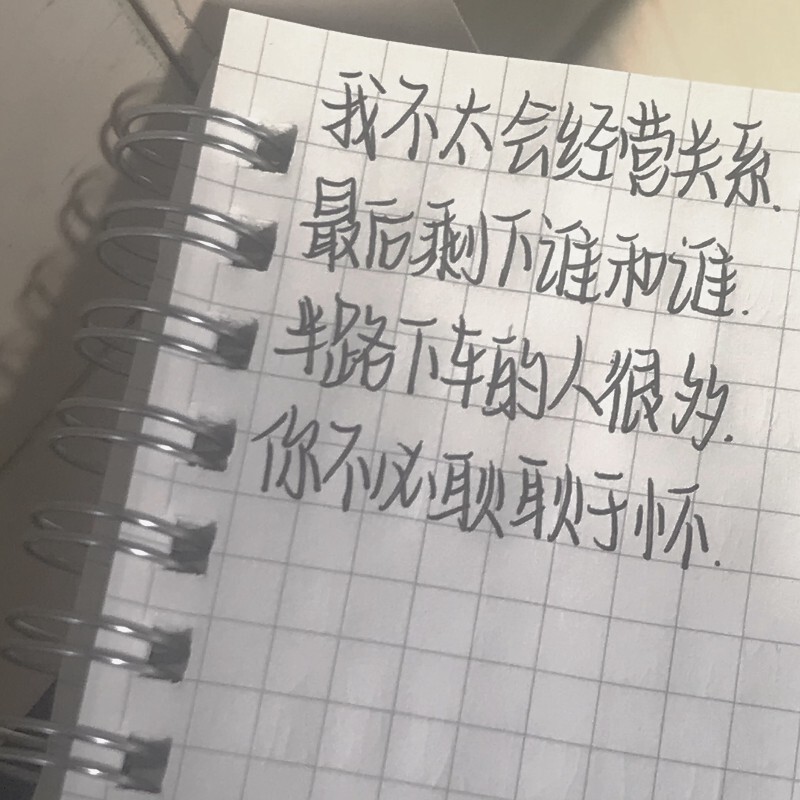 我不太会经营关系.
最后剩下谁和谁.
半路下车的人很多.
你不必耿耿于怀.